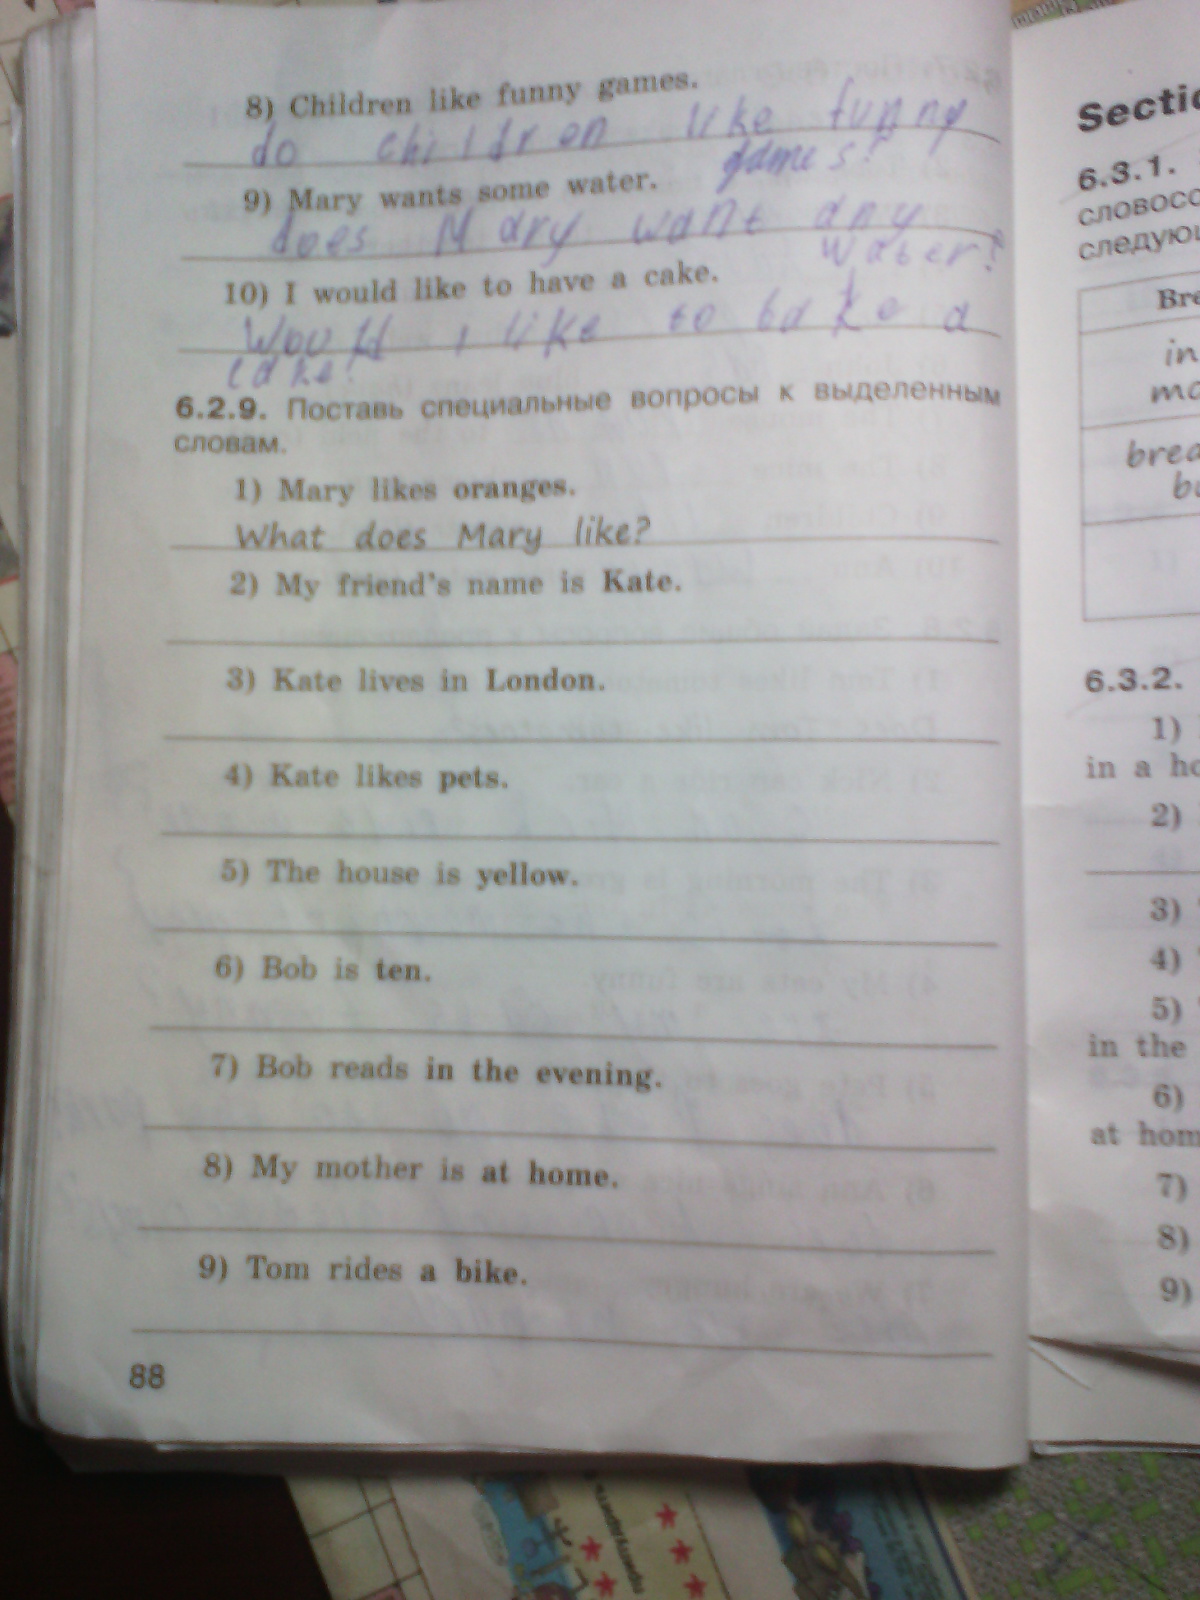 8) Children like funny games.
do children like funny
games?
9) Mary wants some water.
does Mary want any
water?
10) I would like to have a cake.
Would I like to
a
cake?
6.2.9. Поставь специальные вопросы к выделенным
словам.
1) Mary likes oranges.
What does Mary like?
2) My friend's name is Kate.
3) Kate lives in London.
4) Kate likes pets.
5) The house is yellow.
6) Bob is ten.
7) Bob reads in the evening.
8) My mother is at home.
9) Tom rides a bike.
88
6.3.1.
6.3.2.
1)
in a
2)
3)
4)
5)
in the
6)
at
7)
8)
9)